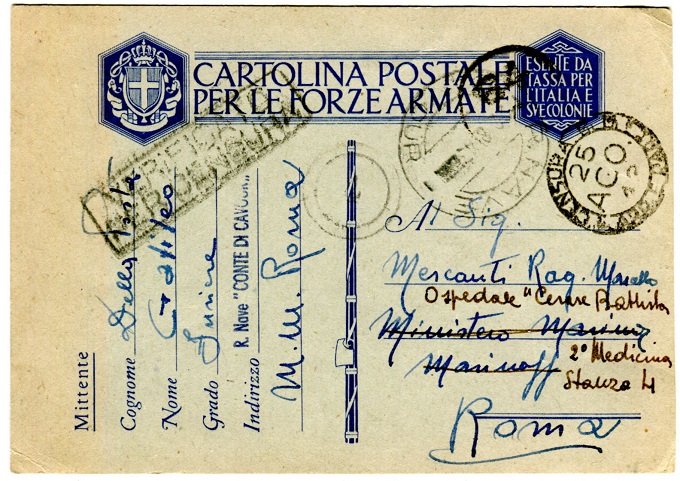 CARTOLINA POSTALE
PER LE FORZE ARMATE
ESENTE DA
TASSA PER
L'ITALIA E
SVE COLONIE
VERIFICATO
PER CENSURA
25
AGO
42
Mittente
Cognome Della
Nome
Grado
Indirizzo R. Nave "CONTE DI CAVOUR"
M. M. Roma
Al Sig.
Mercanti Rag. Marcello
Ospedale "Cesare Battisti"
Ministero Marina
2° Medicina
Stanza 4
Roma